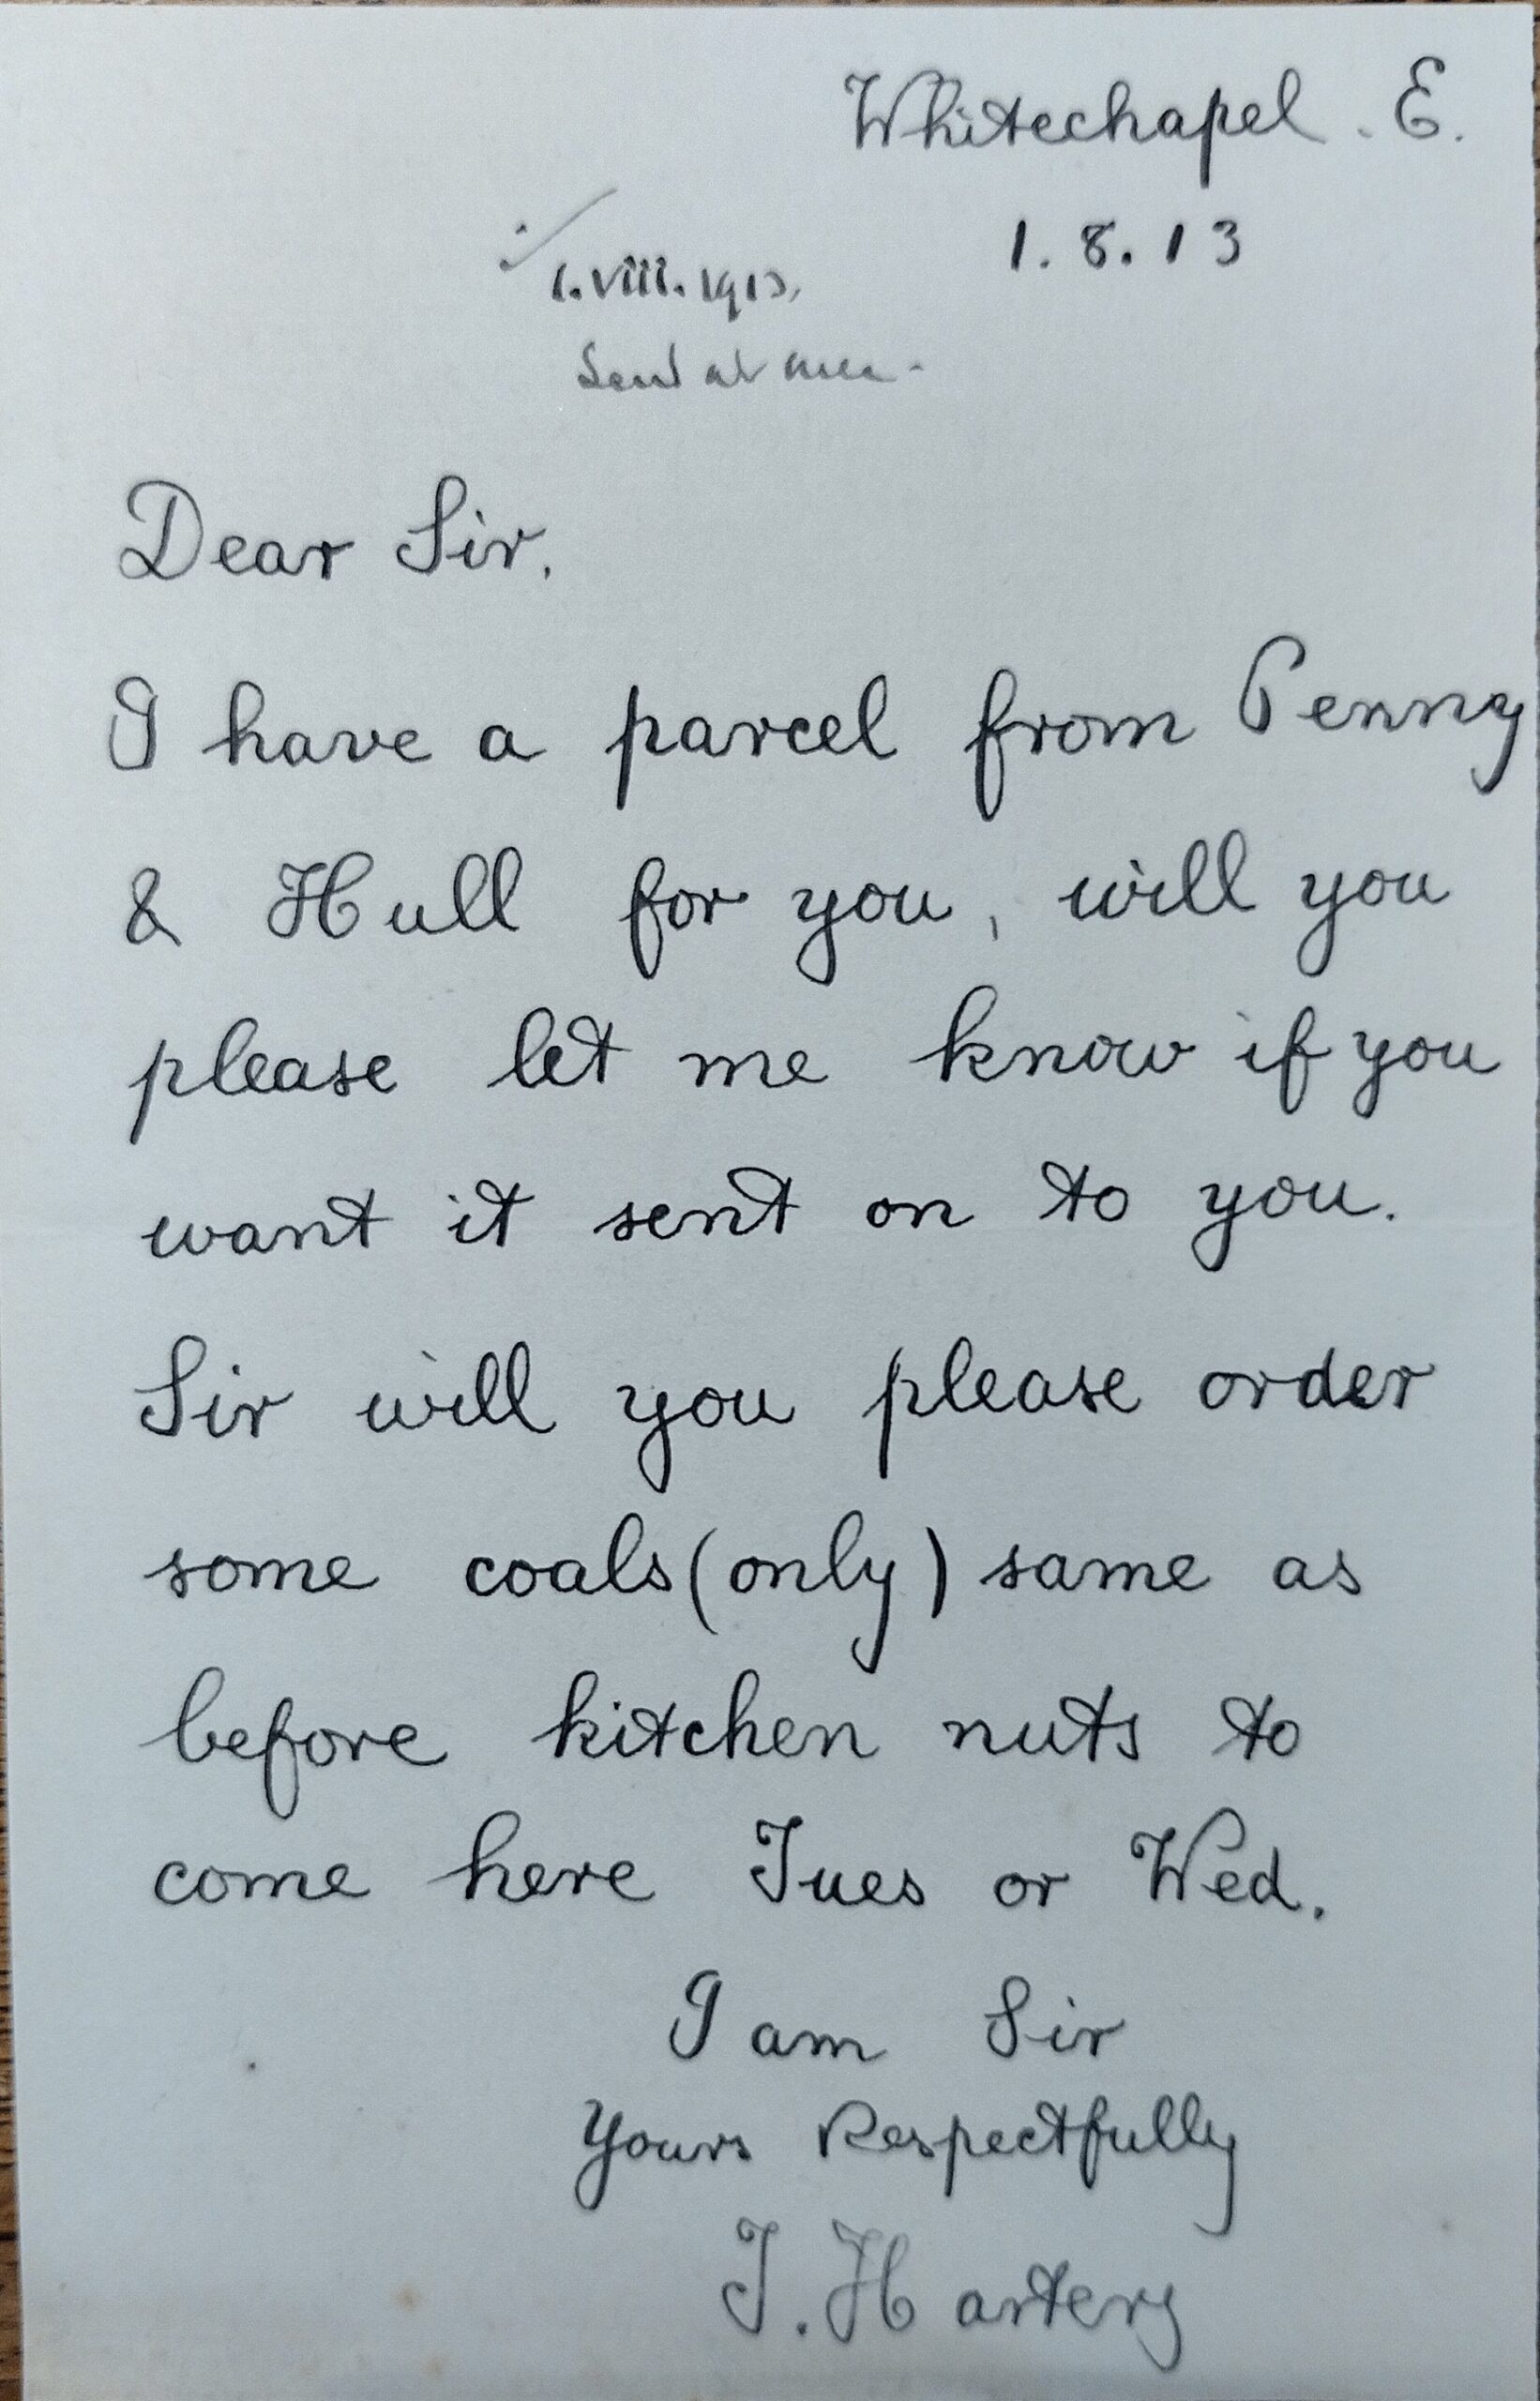 Whitechapel . E.
1. 8. 13
1. viii. 1913.
Send at once.
Dear Sir.
I have a parcel from Penny
& Hull for you, will you
please let me know if you
want it sent on to you.
Sir will you please order
some coals (only) same as
before kitchen nuts to
come here Tues or Wed.
I am Sir
Yours Respectfully